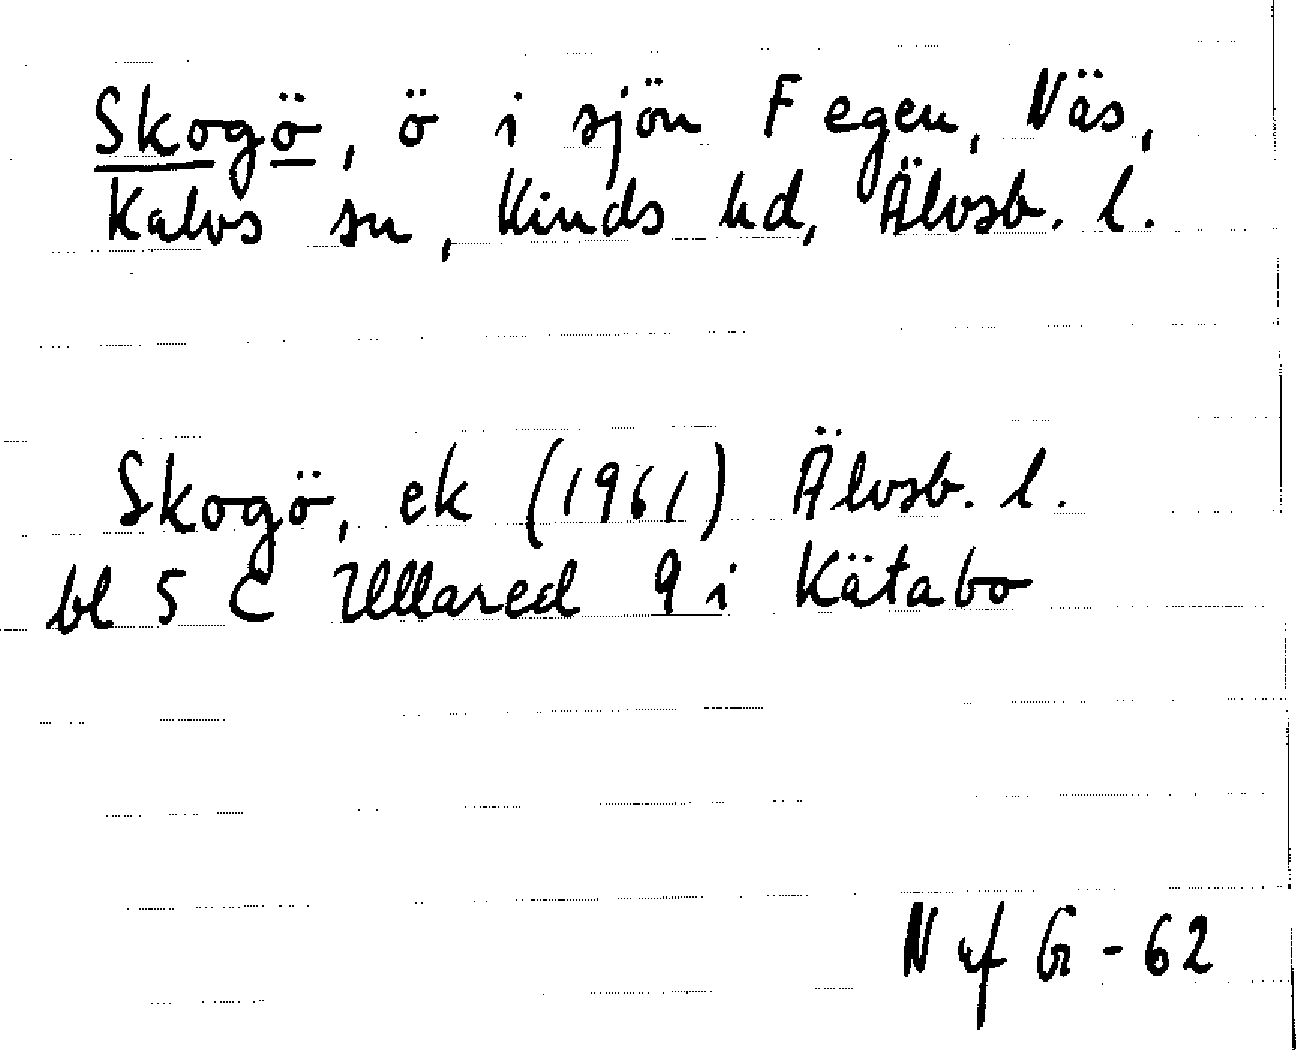 Skogö, ö i sjön Fegen, Näs,
Kalvs sn, Kinds hd, Älvsb. l.
Skogö, ek (1961) Älvsb. l.
bl 5 C Ullared 9 i Kätabo
N af G - 62